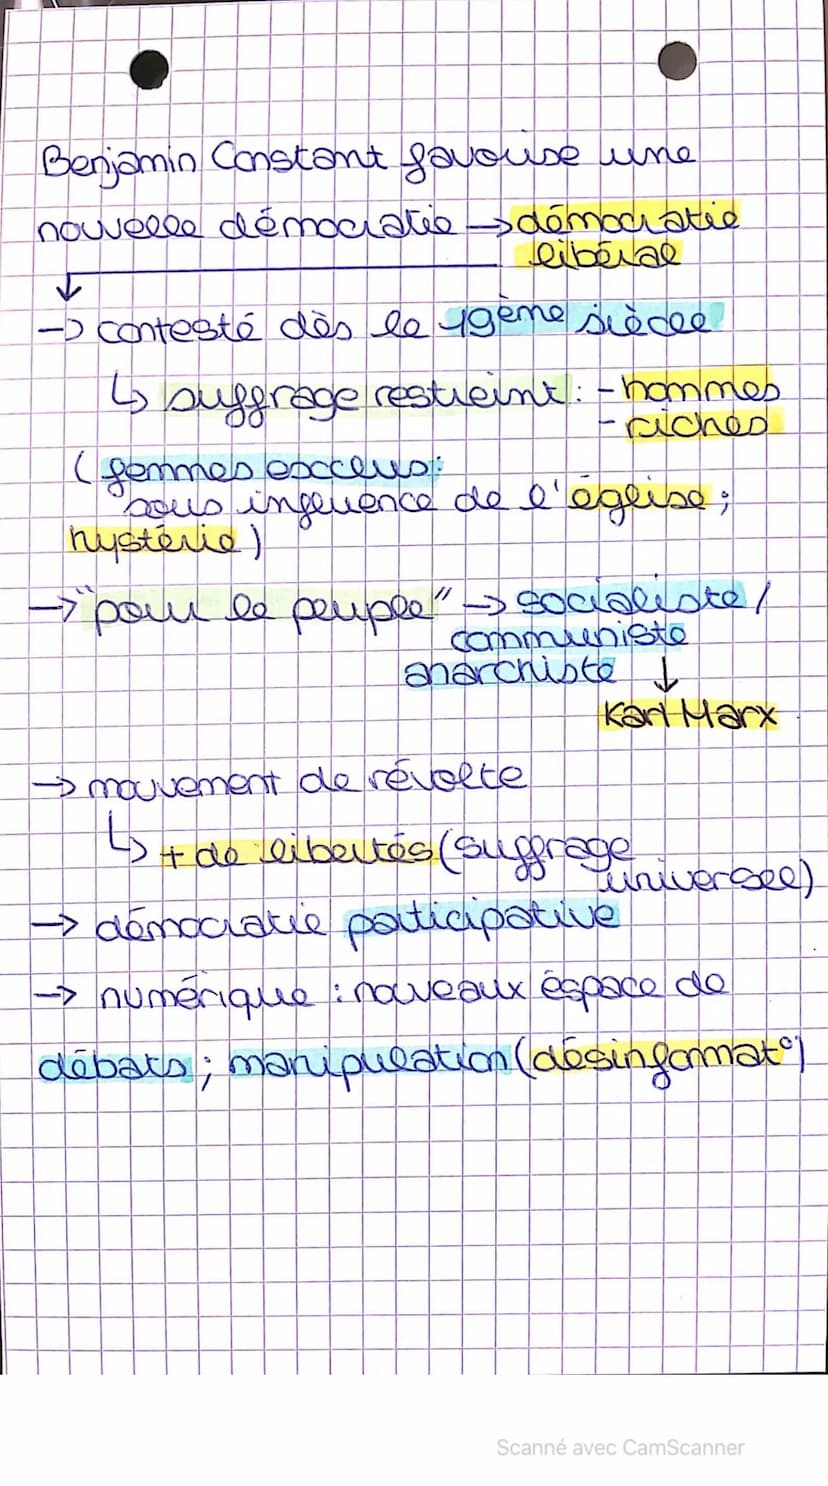 Benjamin Constant favorise une
nouvelle démocratie → démocratie
libéral
→ contesté dès le 19ème siècle
↳ suffrage restreint : - hommes
- riches
( femmes exclus:
sous influence de l'église ;
hystérie )
→ "pour le peuple" → socialiste /
communiste
anarchiste ↓
Karl Marx
→ mouvement de révolte
↳ + de libertés (suffrage
universel)
→ démocratie participative
→ numérique : nouveaux éspace de
débats ; manipulation (désinformat°)
Scanné avec CamScanner